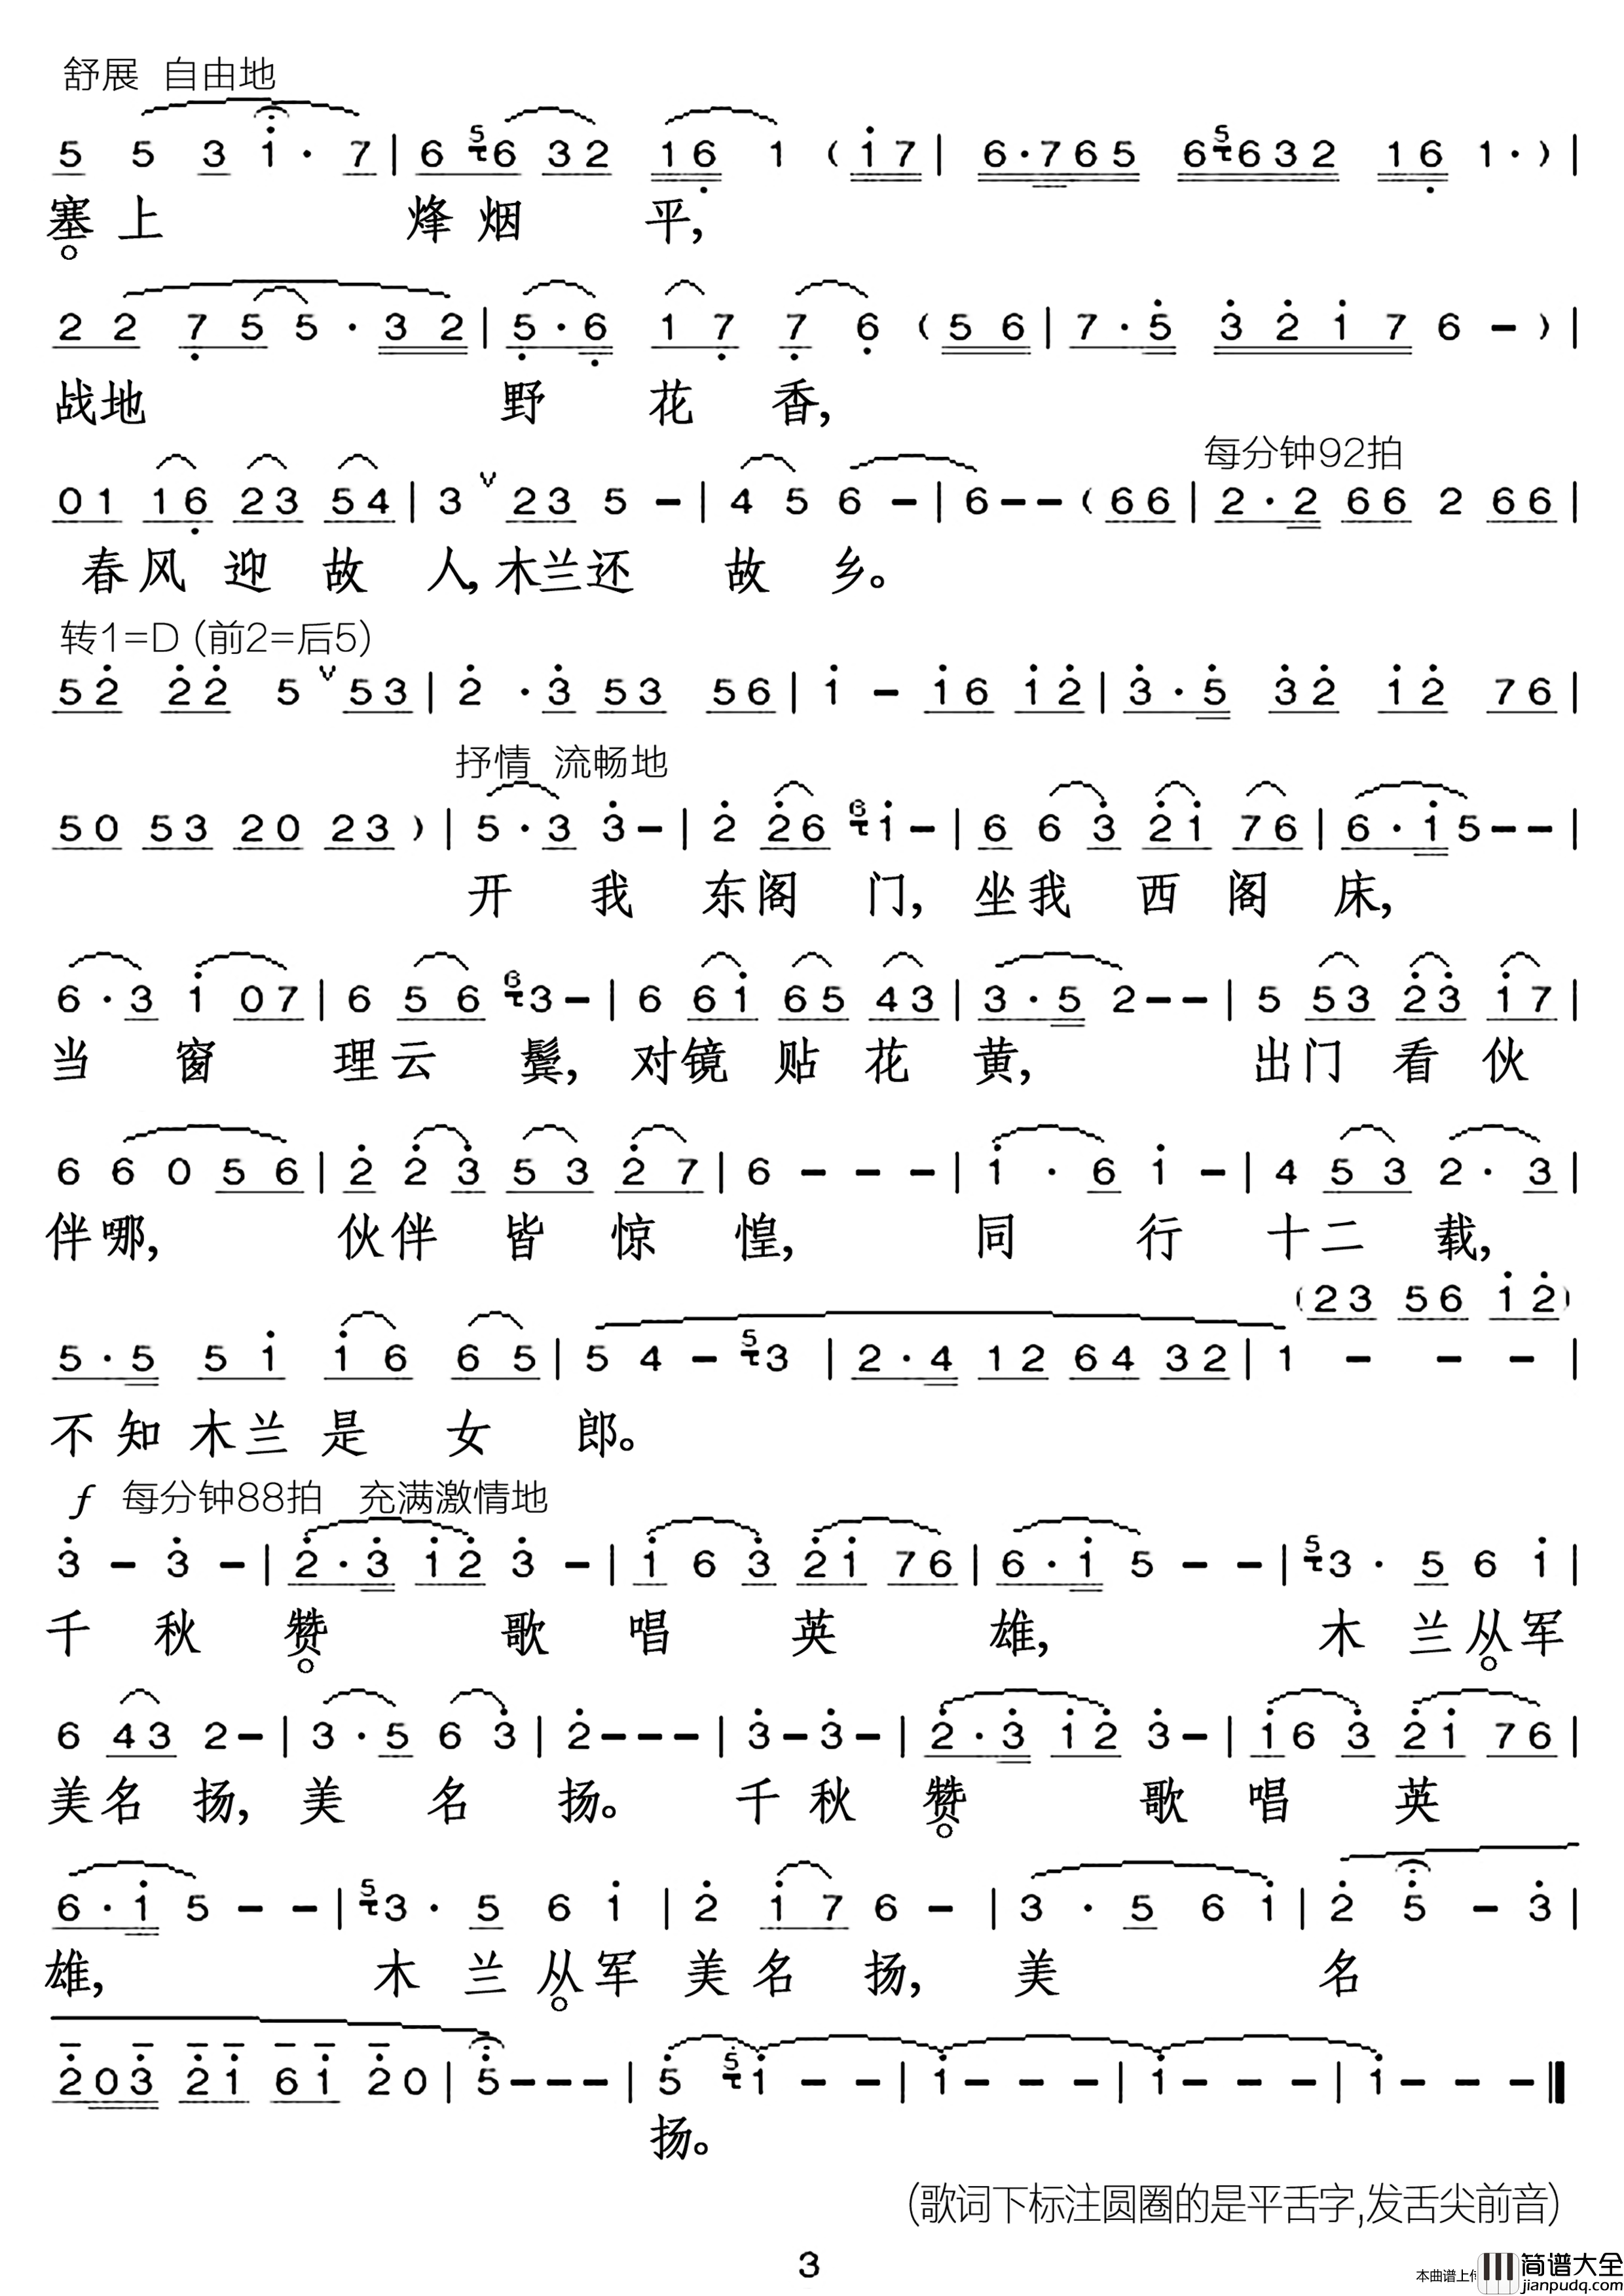 舒展 自由地
5 5 3 i · 7 | 6 5 6 3 2 1 6 1 ( i 7 | 6 · 7 6 5 6 5 6 3 2 1 6 1 · ) |
塞上 烽烟 平,
2 2 7 5 5 · 3 2 | 5 · 6 1 7 7 6 ( 5 6 | 7 · 5 3 2 i 7 6 - ) |
战地 野 花 香,
每分钟92拍
0 1 1 6 2 3 5 4 | 3 v 2 3 5 - | 4 5 6 - | 6 - - ( 6 6 | 2 · 2 6 6 2 6 6 |
春风 迎 故 人,木兰还 故 乡。
转1=D (前2=后5)
5 2 2 2 5 v 5 3 | 2 · 3 5 3 5 6 | i - i 6 i 2 | 3 · 5 3 2 i 2 7 6 |
抒情 流畅地
5 0 5 3 2 0 2 3 ) | 5 · 3 3 - | 2 2 6 6 i - | 6 6 3 2 i 7 6 | 6 · i 5 - - |
开 我 东阁 门, 坐我 西 阁 床,
6 · 3 i 0 7 | 6 5 6 6 3 - | 6 6 i 6 5 4 3 | 3 · 5 2 - - | 5 5 3 2 3 i 7 |
当 窗 理云 鬓, 对镜 贴 花 黄, 出门 看 伙
6 6 0 5 6 | 2 2 3 5 3 2 7 | 6 - - - | i · 6 i - | 4 5 3 2 · 3 |
伴哪, 伙伴 皆 惊 惶, 同 行 十二 载,
( 2 3 5 6 i 2 )
5 · 5 5 i i 6 6 5 | 5 4 - 5 3 | 2 · 4 1 2 6 4 3 2 | 1 - - - |
不知木兰是 女 郎。
f 每分钟88拍 充满激情地
3 - 3 - | 2 · 3 i 2 3 - | i 6 3 2 i 7 6 | 6 · i 5 - - | 5 3 · 5 6 i |
千 秋 赞 歌 唱 英 雄, 木 兰从军
6 4 3 2 - | 3 · 5 6 3 | 2 - - - | 3 - 3 - | 2 · 3 i 2 3 - | i 6 3 2 i 7 6 |
美名 扬, 美 名 扬。 千秋 赞 歌 唱 英
6 · i 5 - - | 5 3 · 5 6 i | 2 i 7 6 - | 3 · 5 6 i | 2 5 - 3 |
雄, 木 兰 从军 美名 扬, 美 名
2 0 3 2 i 6 i 2 0 | 5 - - - | 5 5 i - - | i - - - | i - - - | i - - - ‖
扬。
(歌词下标注圆圈的是平舌字,发舌尖前音)
3
本曲谱上传
简谱大全
jianpudq.com